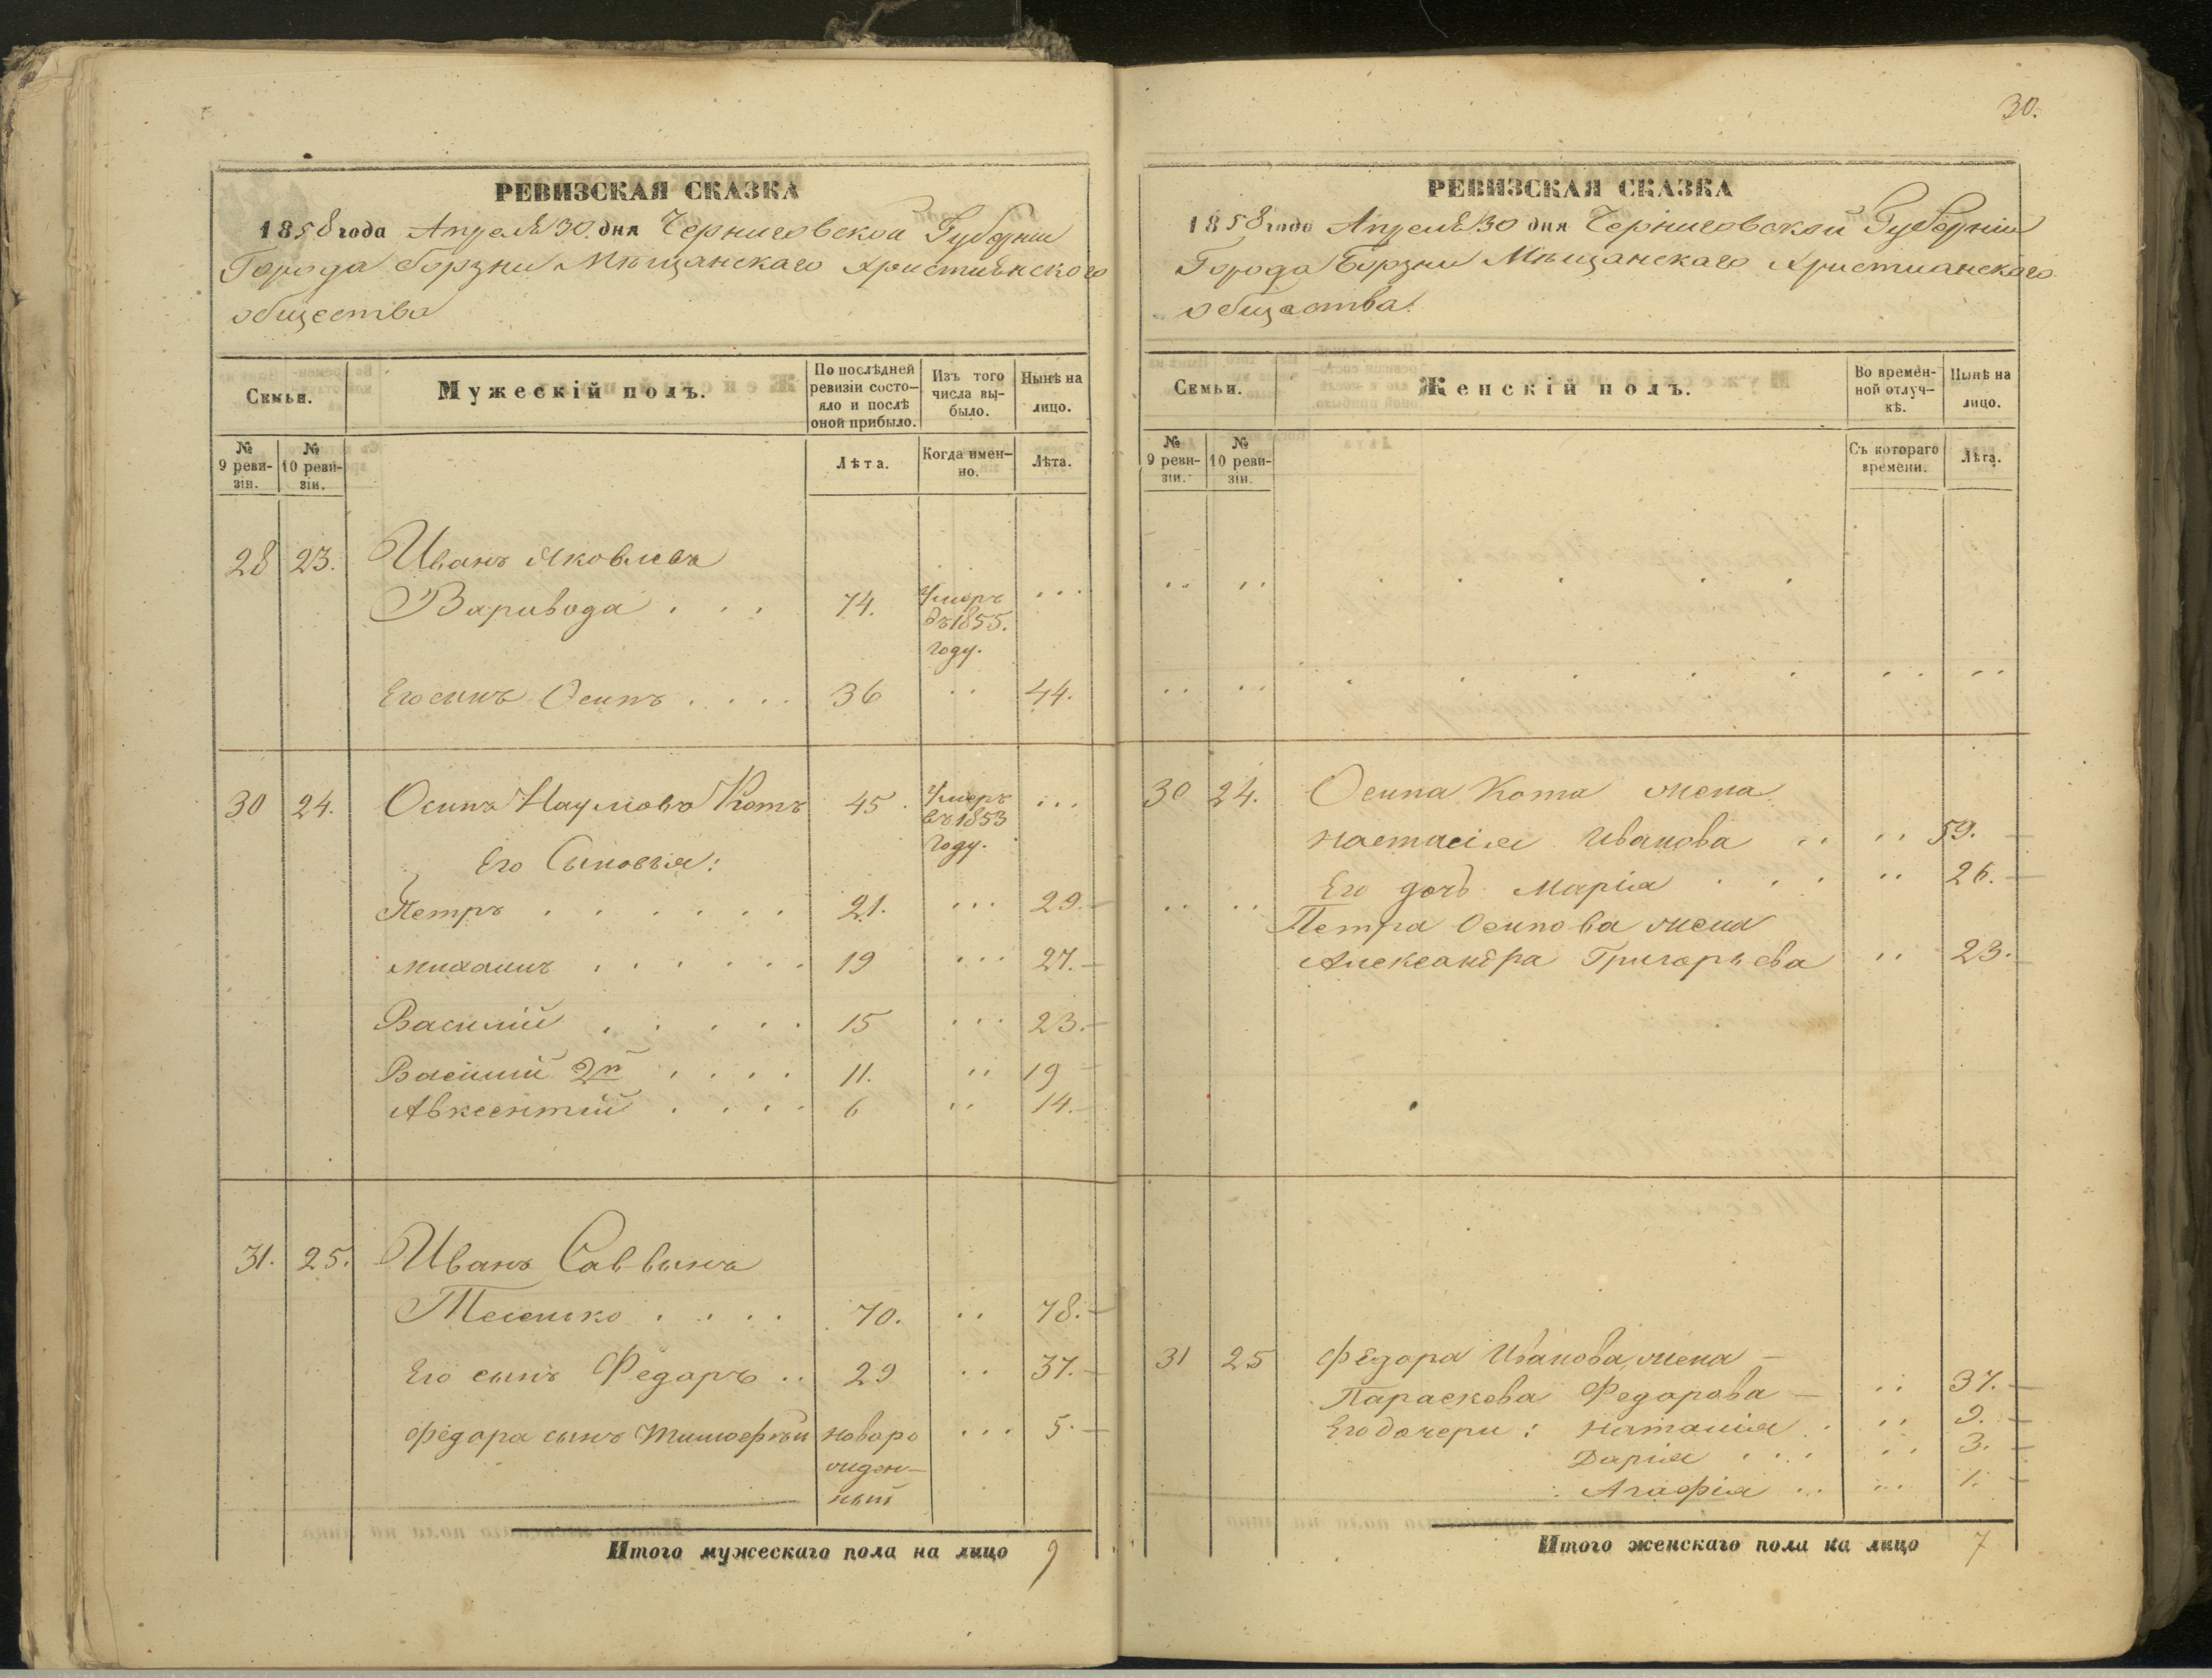 РЕВИЗСКАЯ СКАЗКА
1858 года Апреля 30 дня Черниговской Губернии
Города Борзны Мѣщанскаго Христіянского
общества
Семьи.
Мужескій полъ.
По послѣдней ревизіи состо-
яло и послѣ оной прибыло.
Изъ того числа вы-
было.
Нынѣ на лицо.
№ 9 реви-
зіи.
№ 10 реви-
зіи.
Лѣта.
Когда имен-
но.
Лѣта.
28 23. Иванъ Яковлевъ
Варивода . . . 74. Умеръ ...
въ 1855.
году.
Его сынъ Осипъ . . . . 36 .. 44.
30 24. Осипъ Наумовъ Котъ 45. Умеръ ...
въ 1853
году.
Его Сыновья:
Петръ . . . . . . 21. ... 29.
Михаилъ . . . . . . 19 ... 27.
Василій . . . . . 15 ... 23.
Василий 2й . . . . 11. .. 19
Авксентий . . . . 6 .. 14.
31. 25. Иванъ Саввинъ
. . . . 70. .. 78.
Его сынъ Федоръ .. 29 .. 37.
Федора сынъ Тимофѣй новоро ... 5.
жден-
ный
Итого мужескаго пола на лицо 9
30.
РЕВИЗСКАЯ СКАЗКА
1858 года Апреля 30 дня Черниговской Губерніи
Города Борзны Мѣщанскаго Христианскаго
общества.
Семьи.
Женскій полъ.
Во времен-
ной отлуч-
кѣ.
Нынѣ на лицо.
№ 9 реви-
зіи.
№ 10 реви-
зіи.
Съ котораго времени.
Лѣта.
30 24. Осипа Кота жена
Настасія Иванова .. .. 59.
Его дочь Марія . . . .. 26.
Петра Осипова жена
Александра Григорьева .. 23.
31 25 Федора Иванова жена
Параскева Федорова .. 37.
Его дочери: Наталія . .. 9.
Дарія . . . .. 3.
Агафія .. ... 1.
Итого женскаго пола на лицо 7